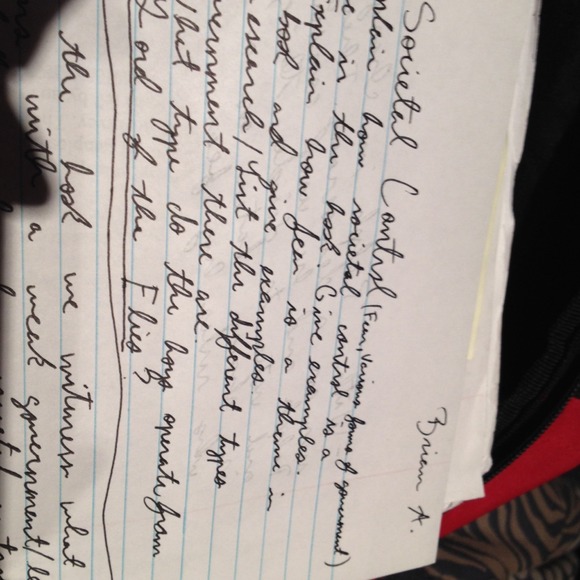 Brian A.
Societal Control (Fear, Various forms of government)
plain how societal control is a
e in the book. Give examples.
Explain how fear is a theme in
book and give examples.
esearch/List the different types
vernment there are.
what type do the boys operate from
Lord of the Flies?
the book we witness what
with a weak government/le